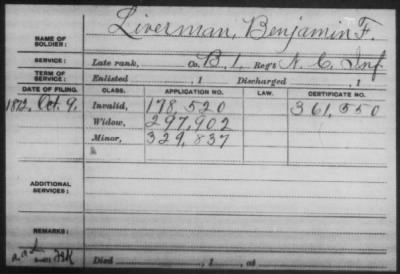 NAME OF SOLDIER: Liverman, Benjamin F.
SERVICE: Late rank, Co. B, 1, Reg't N. C. Inf.
TERM OF SERVICE: Enlisted , 1 Discharged , 1
DATE OF FILING. CLASS. APPLICATION NO. LAW. CERTIFICATE NO.
1872, Oct. 9. Invalid, 178,520 361,550
Widow, 297,902
Minor, 329,837
ADDITIONAL SERVICES:
REMARKS:
Died , 1 , at